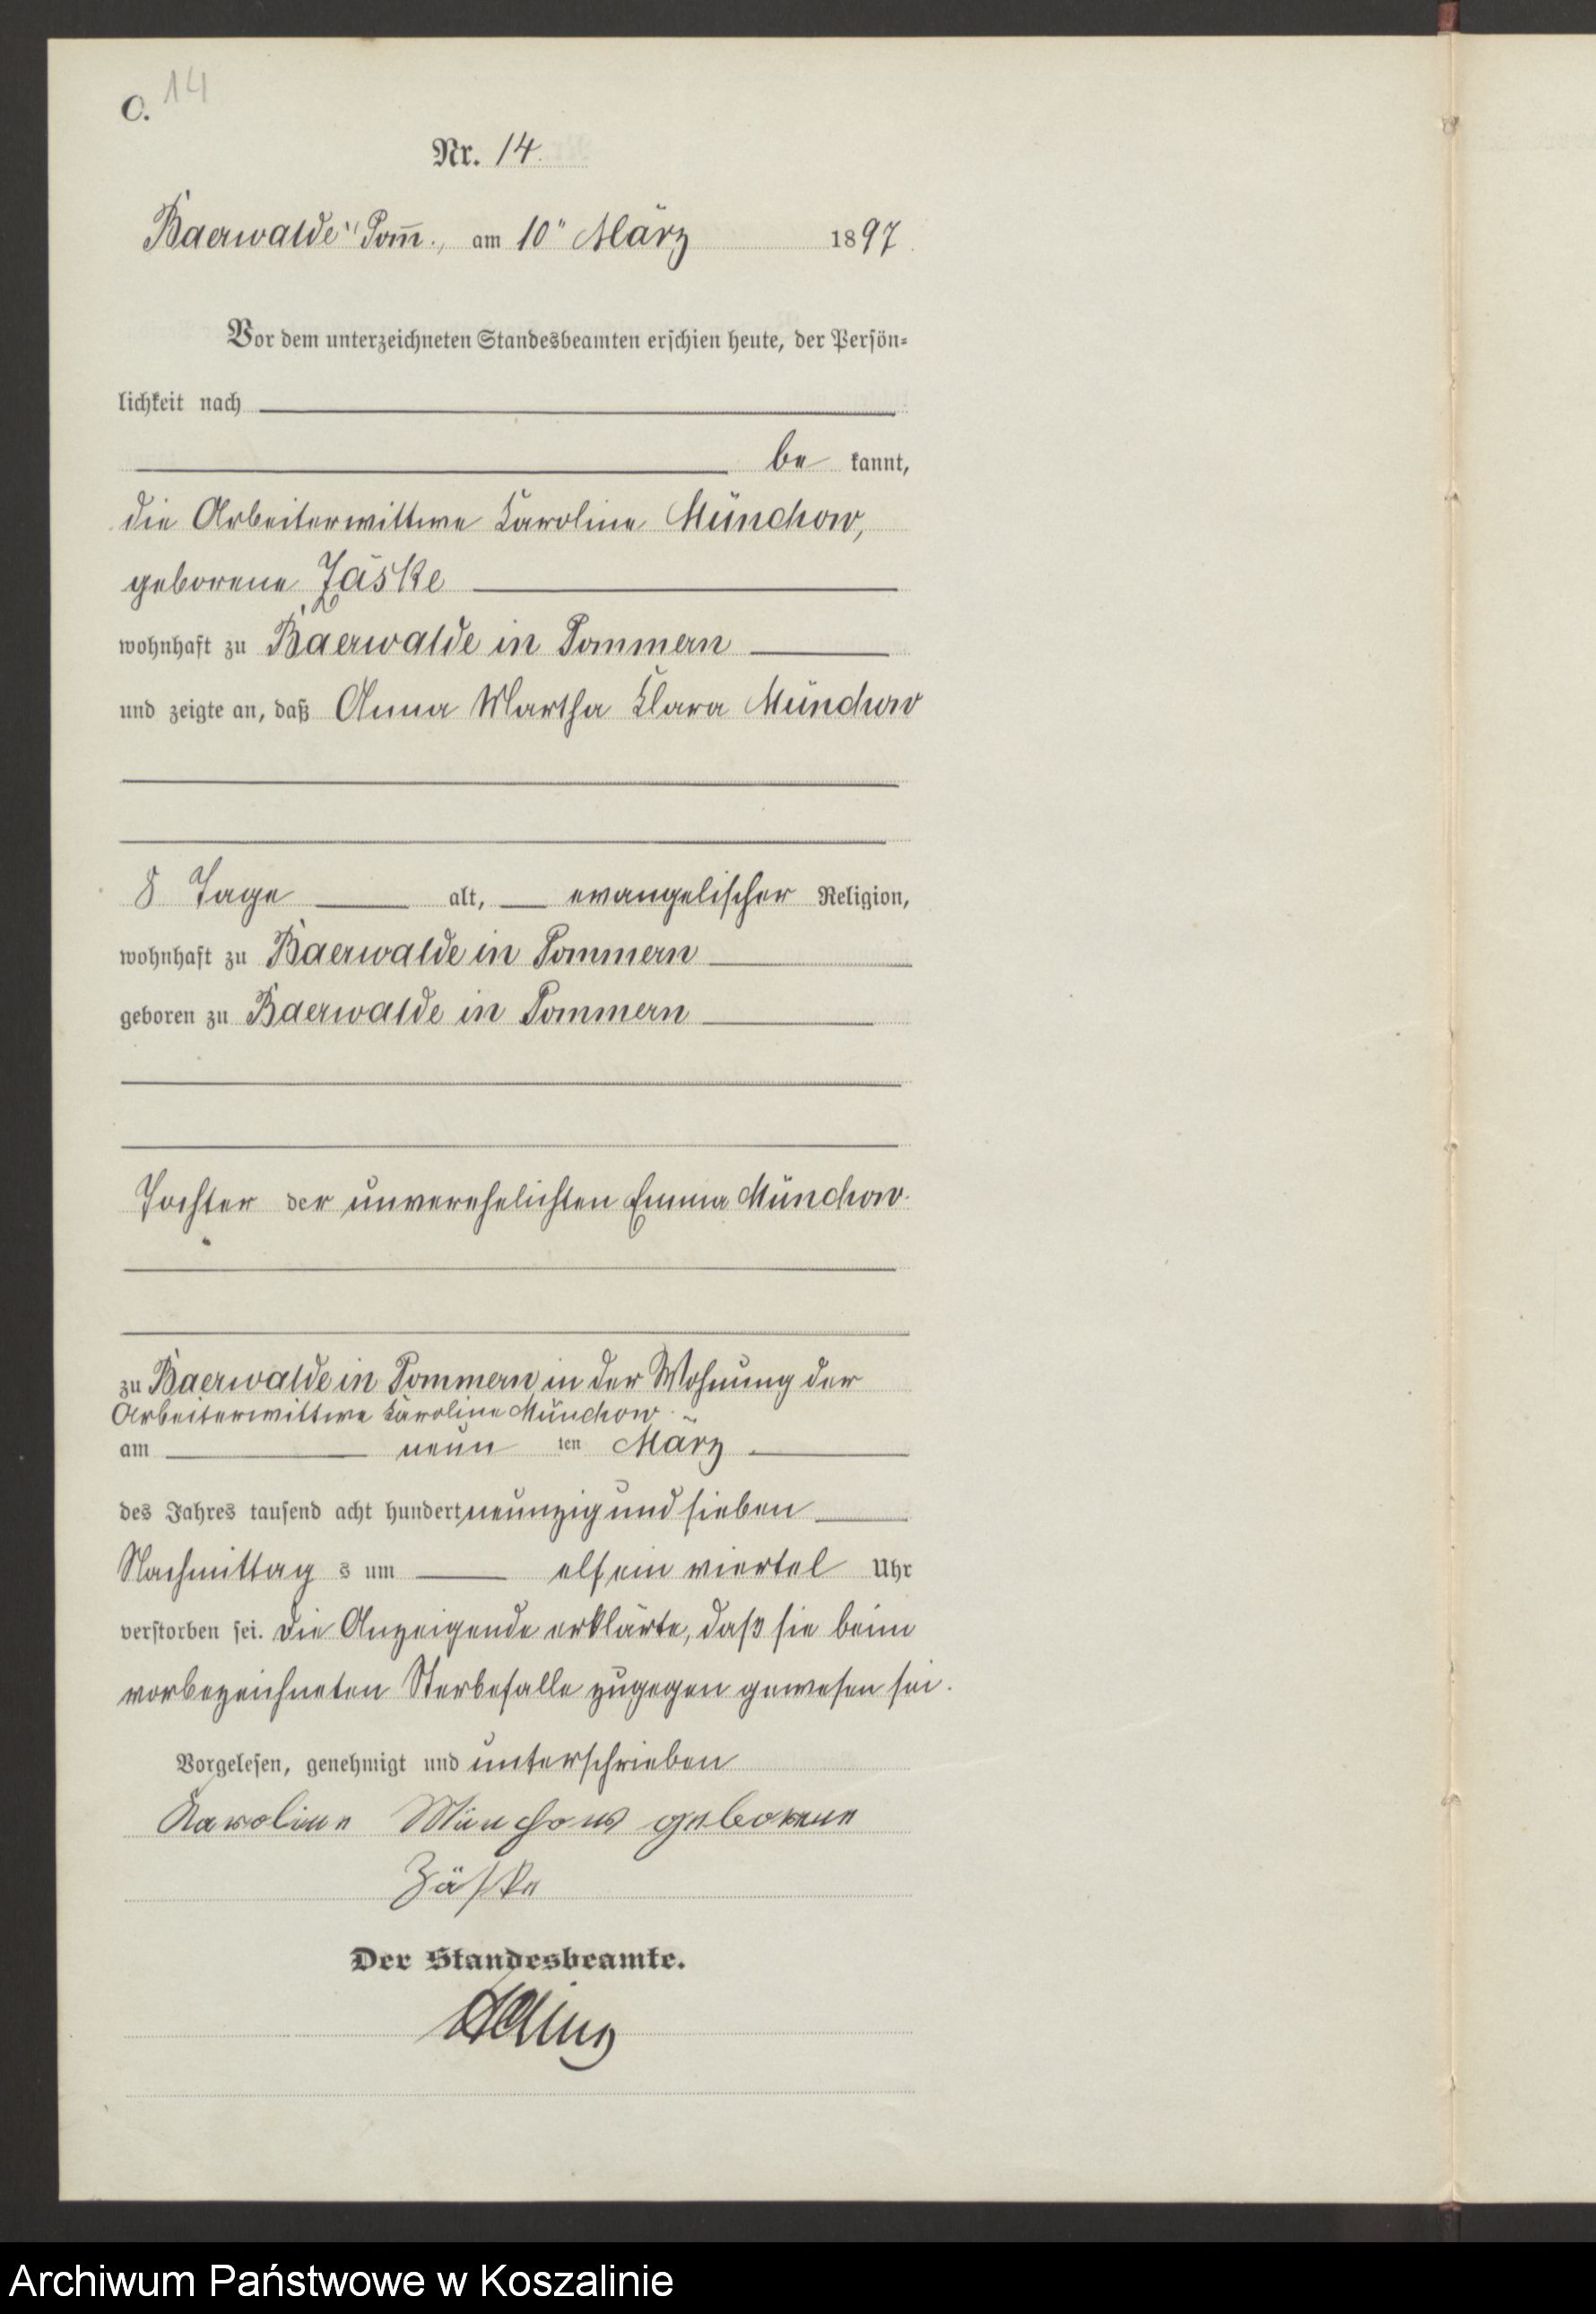 C. 14
Nr. 14.
Baerwalde i/ Pom̄., am 10" März 1897.
Vor dem unterzeichneten Standesbeamten erschien heute, der Persön-
lichkeit nach
be kannt,
die Arbeiterwittwe Karoline Münchow,
geborene Zäske
wohnhaft zu Baerwalde in Pommern
und zeigte an, daß Anna Martha Klara Münchow
8 Tage alt, evangelischer Religion,
wohnhaft zu Baerwalde in Pommern
geboren zu Baerwalde in Pommern
Tochter der unverehelichten Emma Münchow.
zu Baerwalde in Pommern, in der Wohnung der
Arbeiterwittwe Karoline Münchow.
am neun ten März
des Jahres tausend acht hundert neunzig und sieben
Nachmittag s um elf ein viertel Uhr
verstorben sei. Die Anzeigende erklärte, daß sie beim
vorbezeichneten Sterbefalle zugegen gewesen sei.
Vorgelesen, genehmigt und unterschrieben
Karoline Münchow geborene
Zäske
Der Standesbeamte.
Archiwum Państwowe w Koszalinie